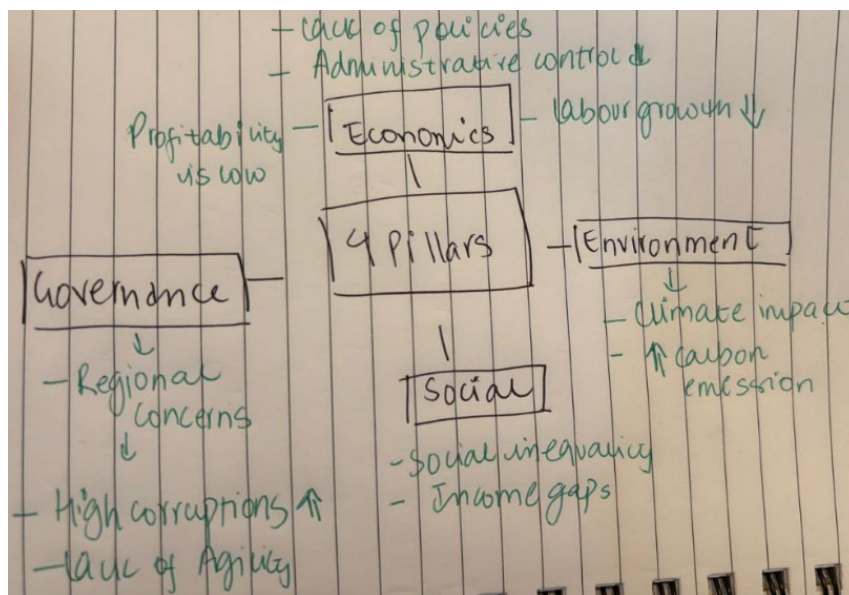 - Lack of policies
- Administrative control ↓
Profitability
is low
- Economics
- labour growth ↓
4 Pillars
Governance
- Environment
↓
- Climate impact
- ↑ carbon
emission
↓
- Regional
concerns
↓
- High corruptions ↑
- Lack of Agility
Social
- Social inequality
- Income gaps